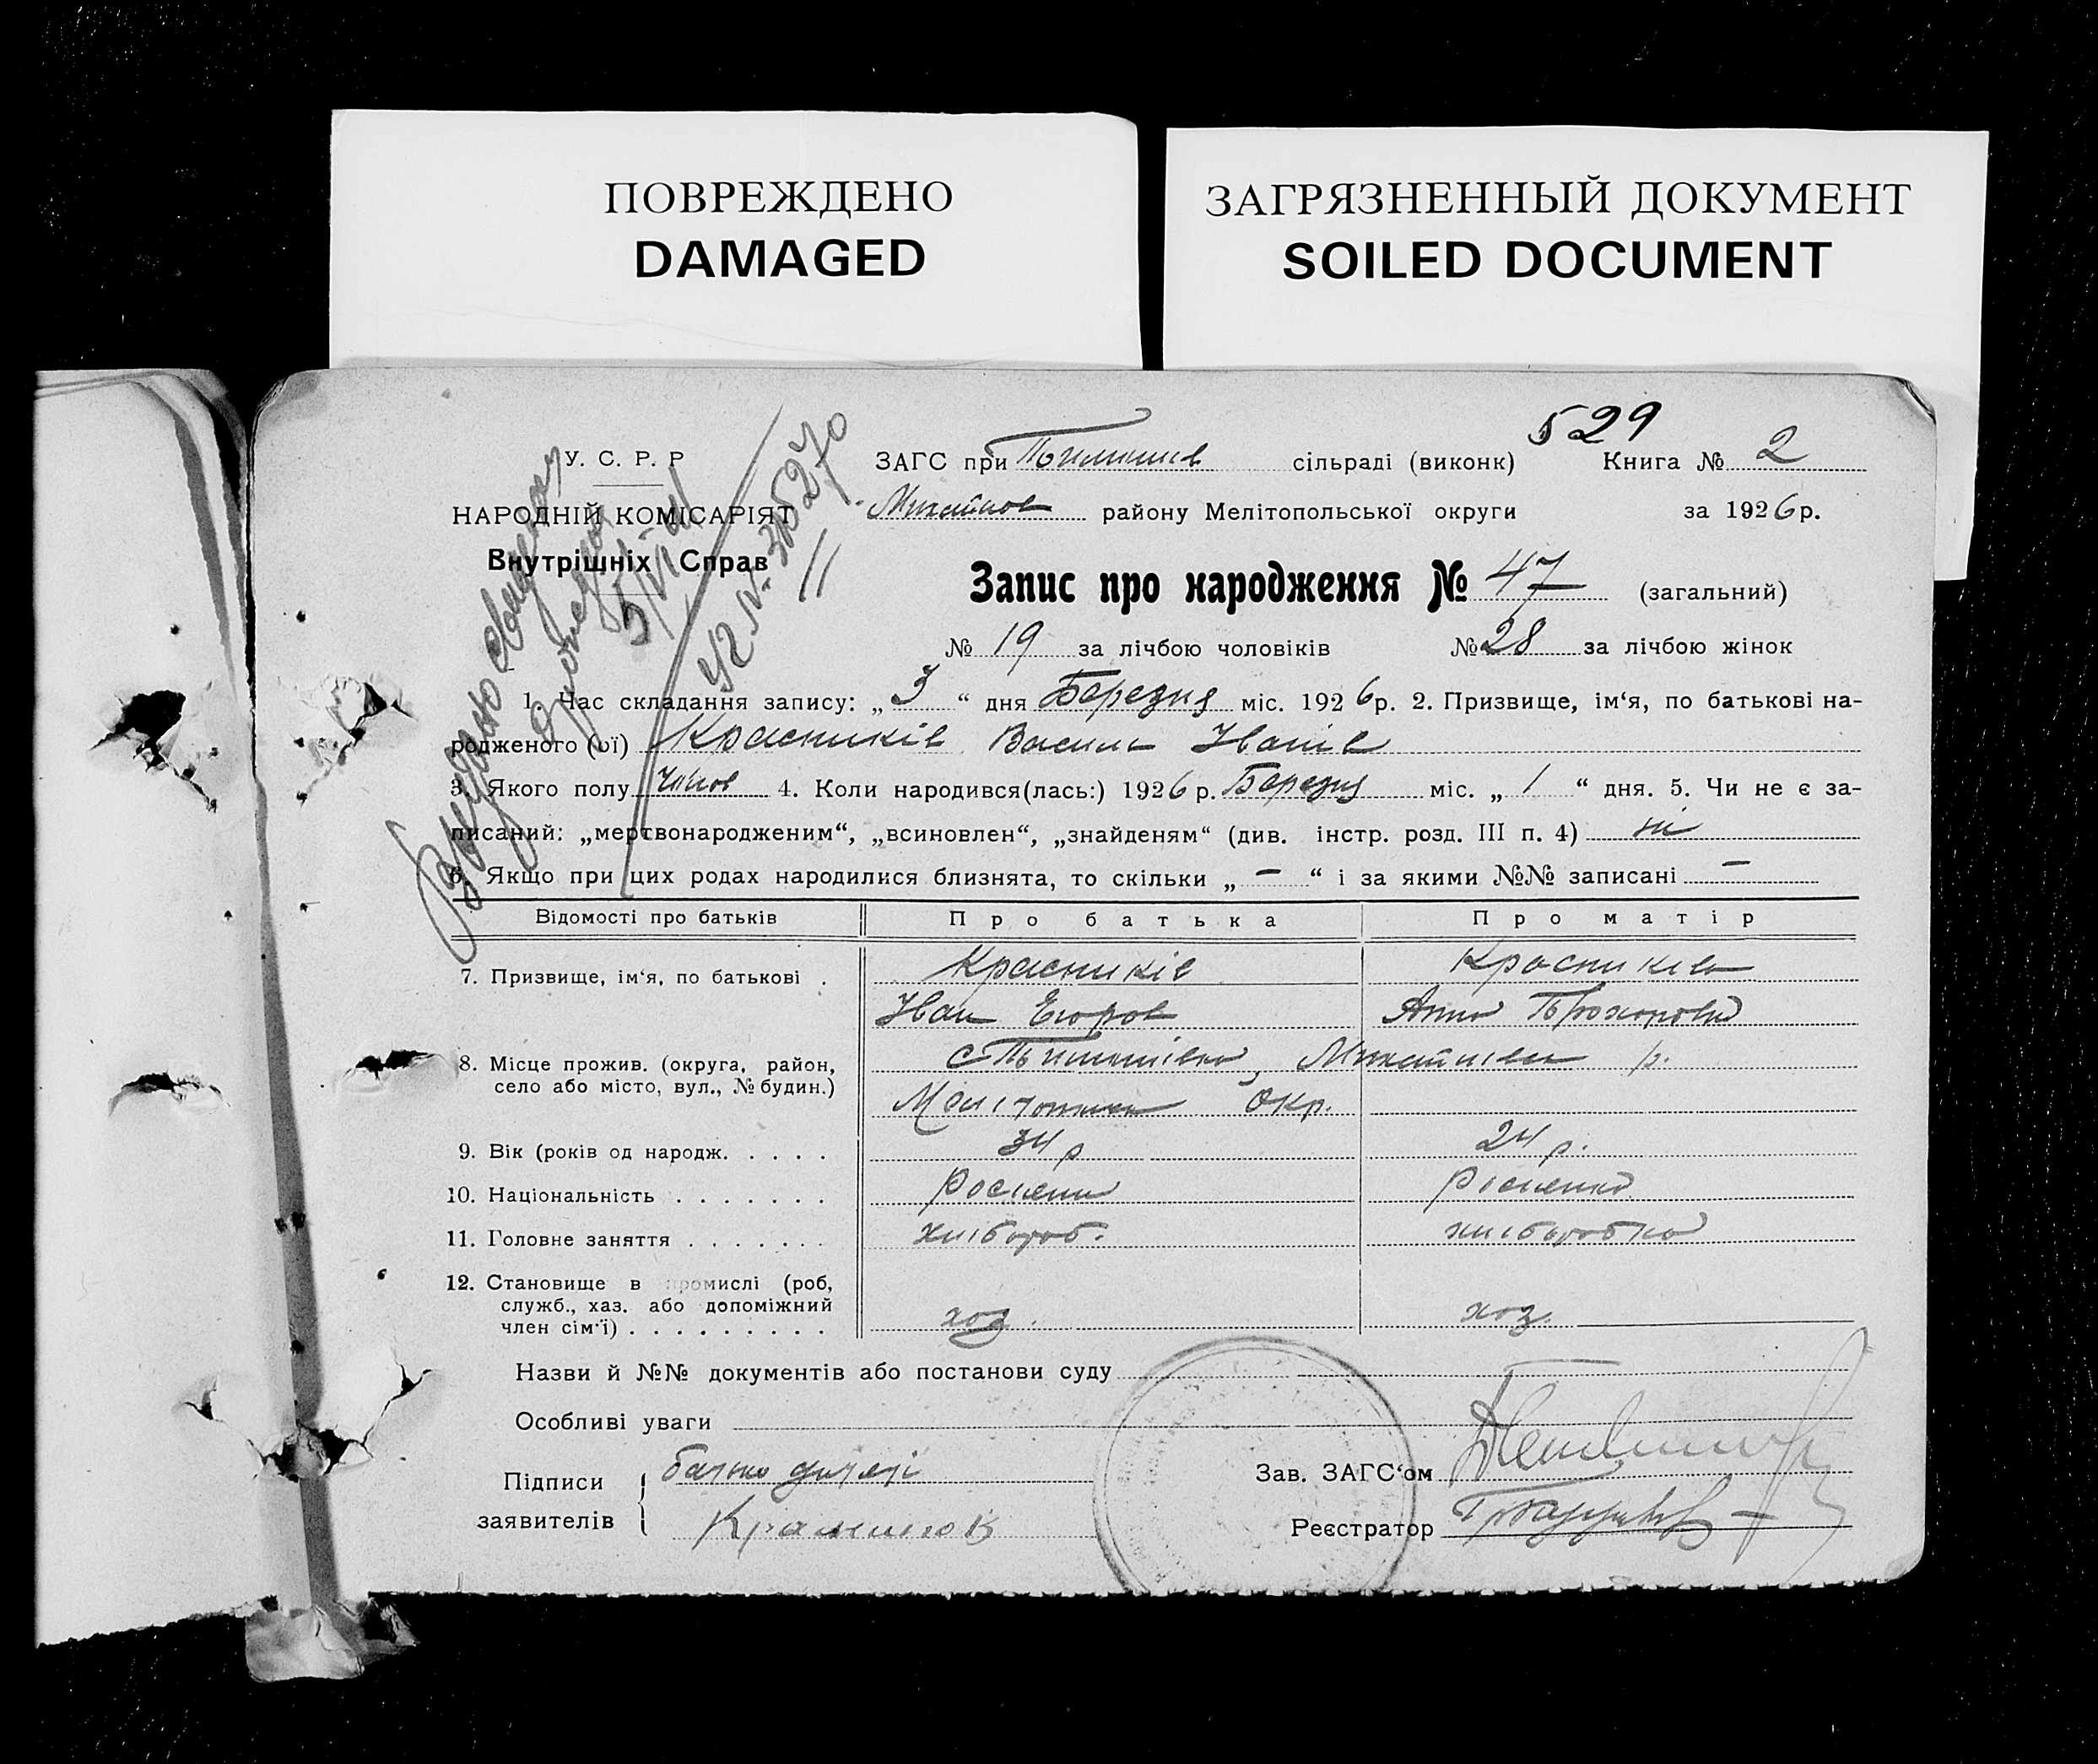 ПОВРЕЖДЕНО
DAMAGED
ЗАГРЯЗНЕННЫЙ ДОКУМЕНТ
SOILED DOCUMENT
529
У. С. Р. Р
НАРОДНІЙ КОМІСАРІЯТ
Внутрішніх Справ
ЗАГС при сільраді (виконк) Книга № 2
Михайлов району Мелітопольської округи за 1926 р.
Запис про народження № 47 (загальний)
№ 19 за лічбою чоловіків № 28 за лічбою жінок
1. Час складання запису: „ 3 “ дня Березня міс. 1926 р. 2. Призвище, ім‘я, по батькові на-
родженого (ої) Красників Василь Іванів
3. Якого полу чолов 4. Коли народився(лась:) 1926 р. Березня міс. „ 1 “ дня. 5. Чи не є за-
писаний: „мертвонародженим“, „всиновлен“, „знайденям“ (див. інстр. розд. III п. 4) ні
6. Якщо при цих родах народилися близнята, то скільки „ — “ і за якими №№ записані —
Відомості про батьків Про батька Про матір
7. Призвище, ім‘я, по батькові . Красників Красникова
Иван Егоров Анна Прохоровна
8. Місце прожив. (округа, район,
село або місто, вул., № будин.)
Мелітопольск Окр.
9. Вік (років од народж. . . . . 34 р 24 р.
10. Національність . . . . . . . Росіенин Росіенка
11. Головне заняття . . . . . . . хлібороб. хліборобка
12. Становище в промислі (роб,
служб., хаз. або допоміжний
член сім‘ї) . . . . . . . . . хоз. хоз.
Назви й №№ документів або постанови суду
Особливі уваги
Підписи батько дитяті
заявителів Красников
Зав. ЗАГС‘ом
Реєстратор